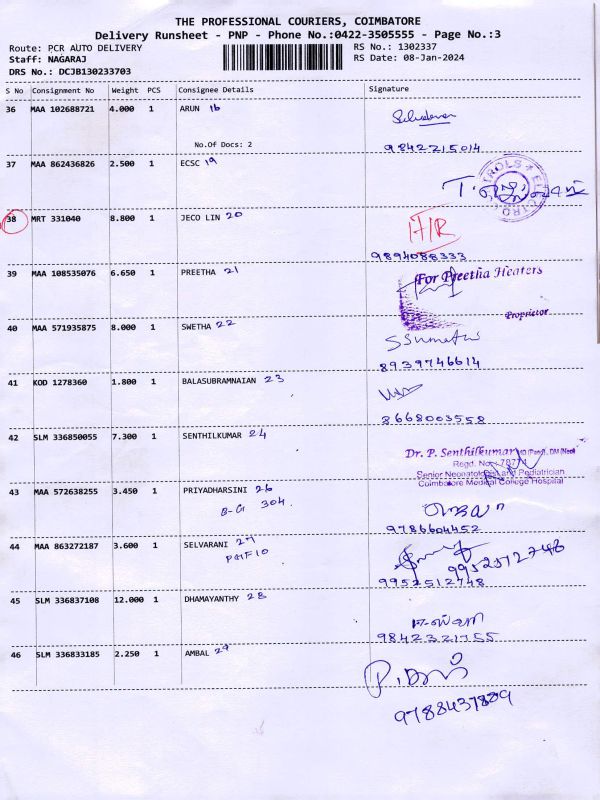 THE PROFESSIONAL COURIERS, COIMBATORE
Delivery Runsheet - PNP - Phone No.:0422-3505555 - Page No.:3
Route: PCR AUTO DELIVERY RS No.: 1302337
Staff: NAGARAJ RS Date: 08-Jan-2024
DRS No.: DCJB130233703
S No Consignment No Weight PCS Consignee Details Signature
36 MAA 102688721 4.000 1 ARUN 16
No.Of Docs: 2
9842215014
37 MAA 862436826 2.500 1 ECSC 19
38 MRT 331040 8.800 1 JECO LIN 20
9894088333
39 MAA 108535076 6.650 1 PREETHA 21
For Preetha Heaters
Proprietor
40 MAA 571935875 8.000 1 SWETHA 22
8939746614
41 KOD 1278360 1.800 1 BALASUBRAMNAIAN 23
8668003558
42 SLM 336850055 7.300 1 SENTHILKUMAR 24
Dr. P. Senthilkumar
Senior Neonatologist and Pediatrician
Coimbatore Medical College Hospital
43 MAA 572638255 3.450 1 PRIYADHARSINI 26
B-G 304
9786604452
44 MAA 863272187 3.600 1 SELVARANI 27
9952512748
9952512748
45 SLM 336837108 12.000 1 DHAMAYANTHY 28
9842321755
46 SLM 336833185 2.250 1 AMBAL 29
9788437889